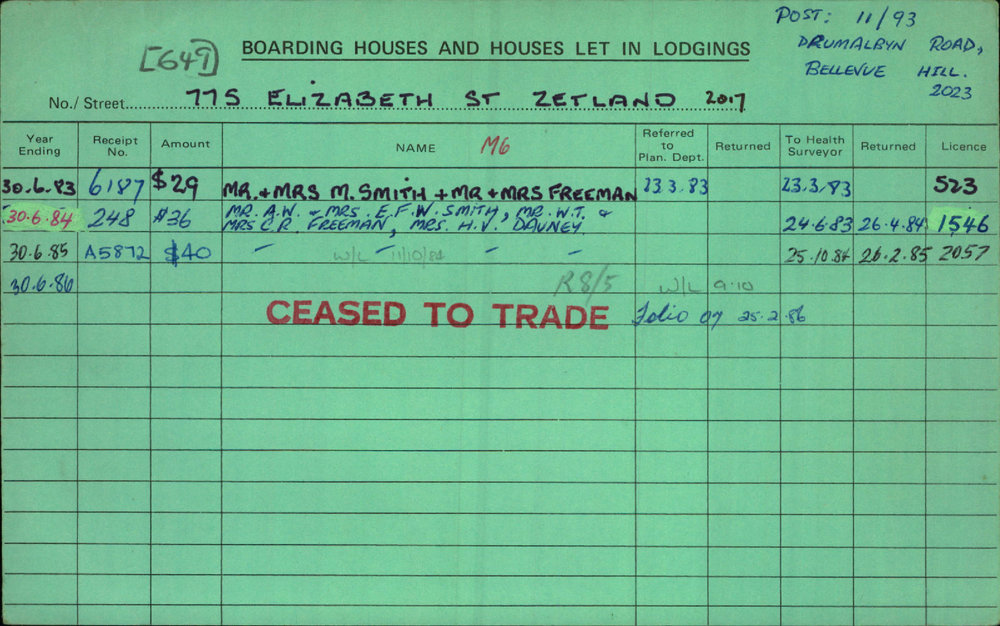 POST: 11/93
DRUMALBYN ROAD,
BELLEVUE HILL.
2023
[649]
BOARDING HOUSES AND HOUSES LET IN LODGINGS
No./ Street 775 ELIZABETH ST ZETLAND 2017
Year Ending Receipt No. Amount NAME M6 Referred to Plan. Dept. Returned To Health Surveyor Returned Licence
30.6.83 6187 $29 MR. + MRS M. SMITH + MR + MRS FREEMAN 23.3.83 23.3.83 523
30.6.84 248 $36 MR. A.W. & MRS. E.F.W. SMITH, MR. W.T. &
MRS C.R. FREEMAN, MRS. H.V. DAUNEY 24.6.83 26.4.84 1546
30.6.85 A5872 $40 – – – – W/L 11/10/84 25.10.84 26.2.85 2057
30.6.86 R8/5 W/L 9.10
CEASED TO TRADE Folio 07 25.2.86